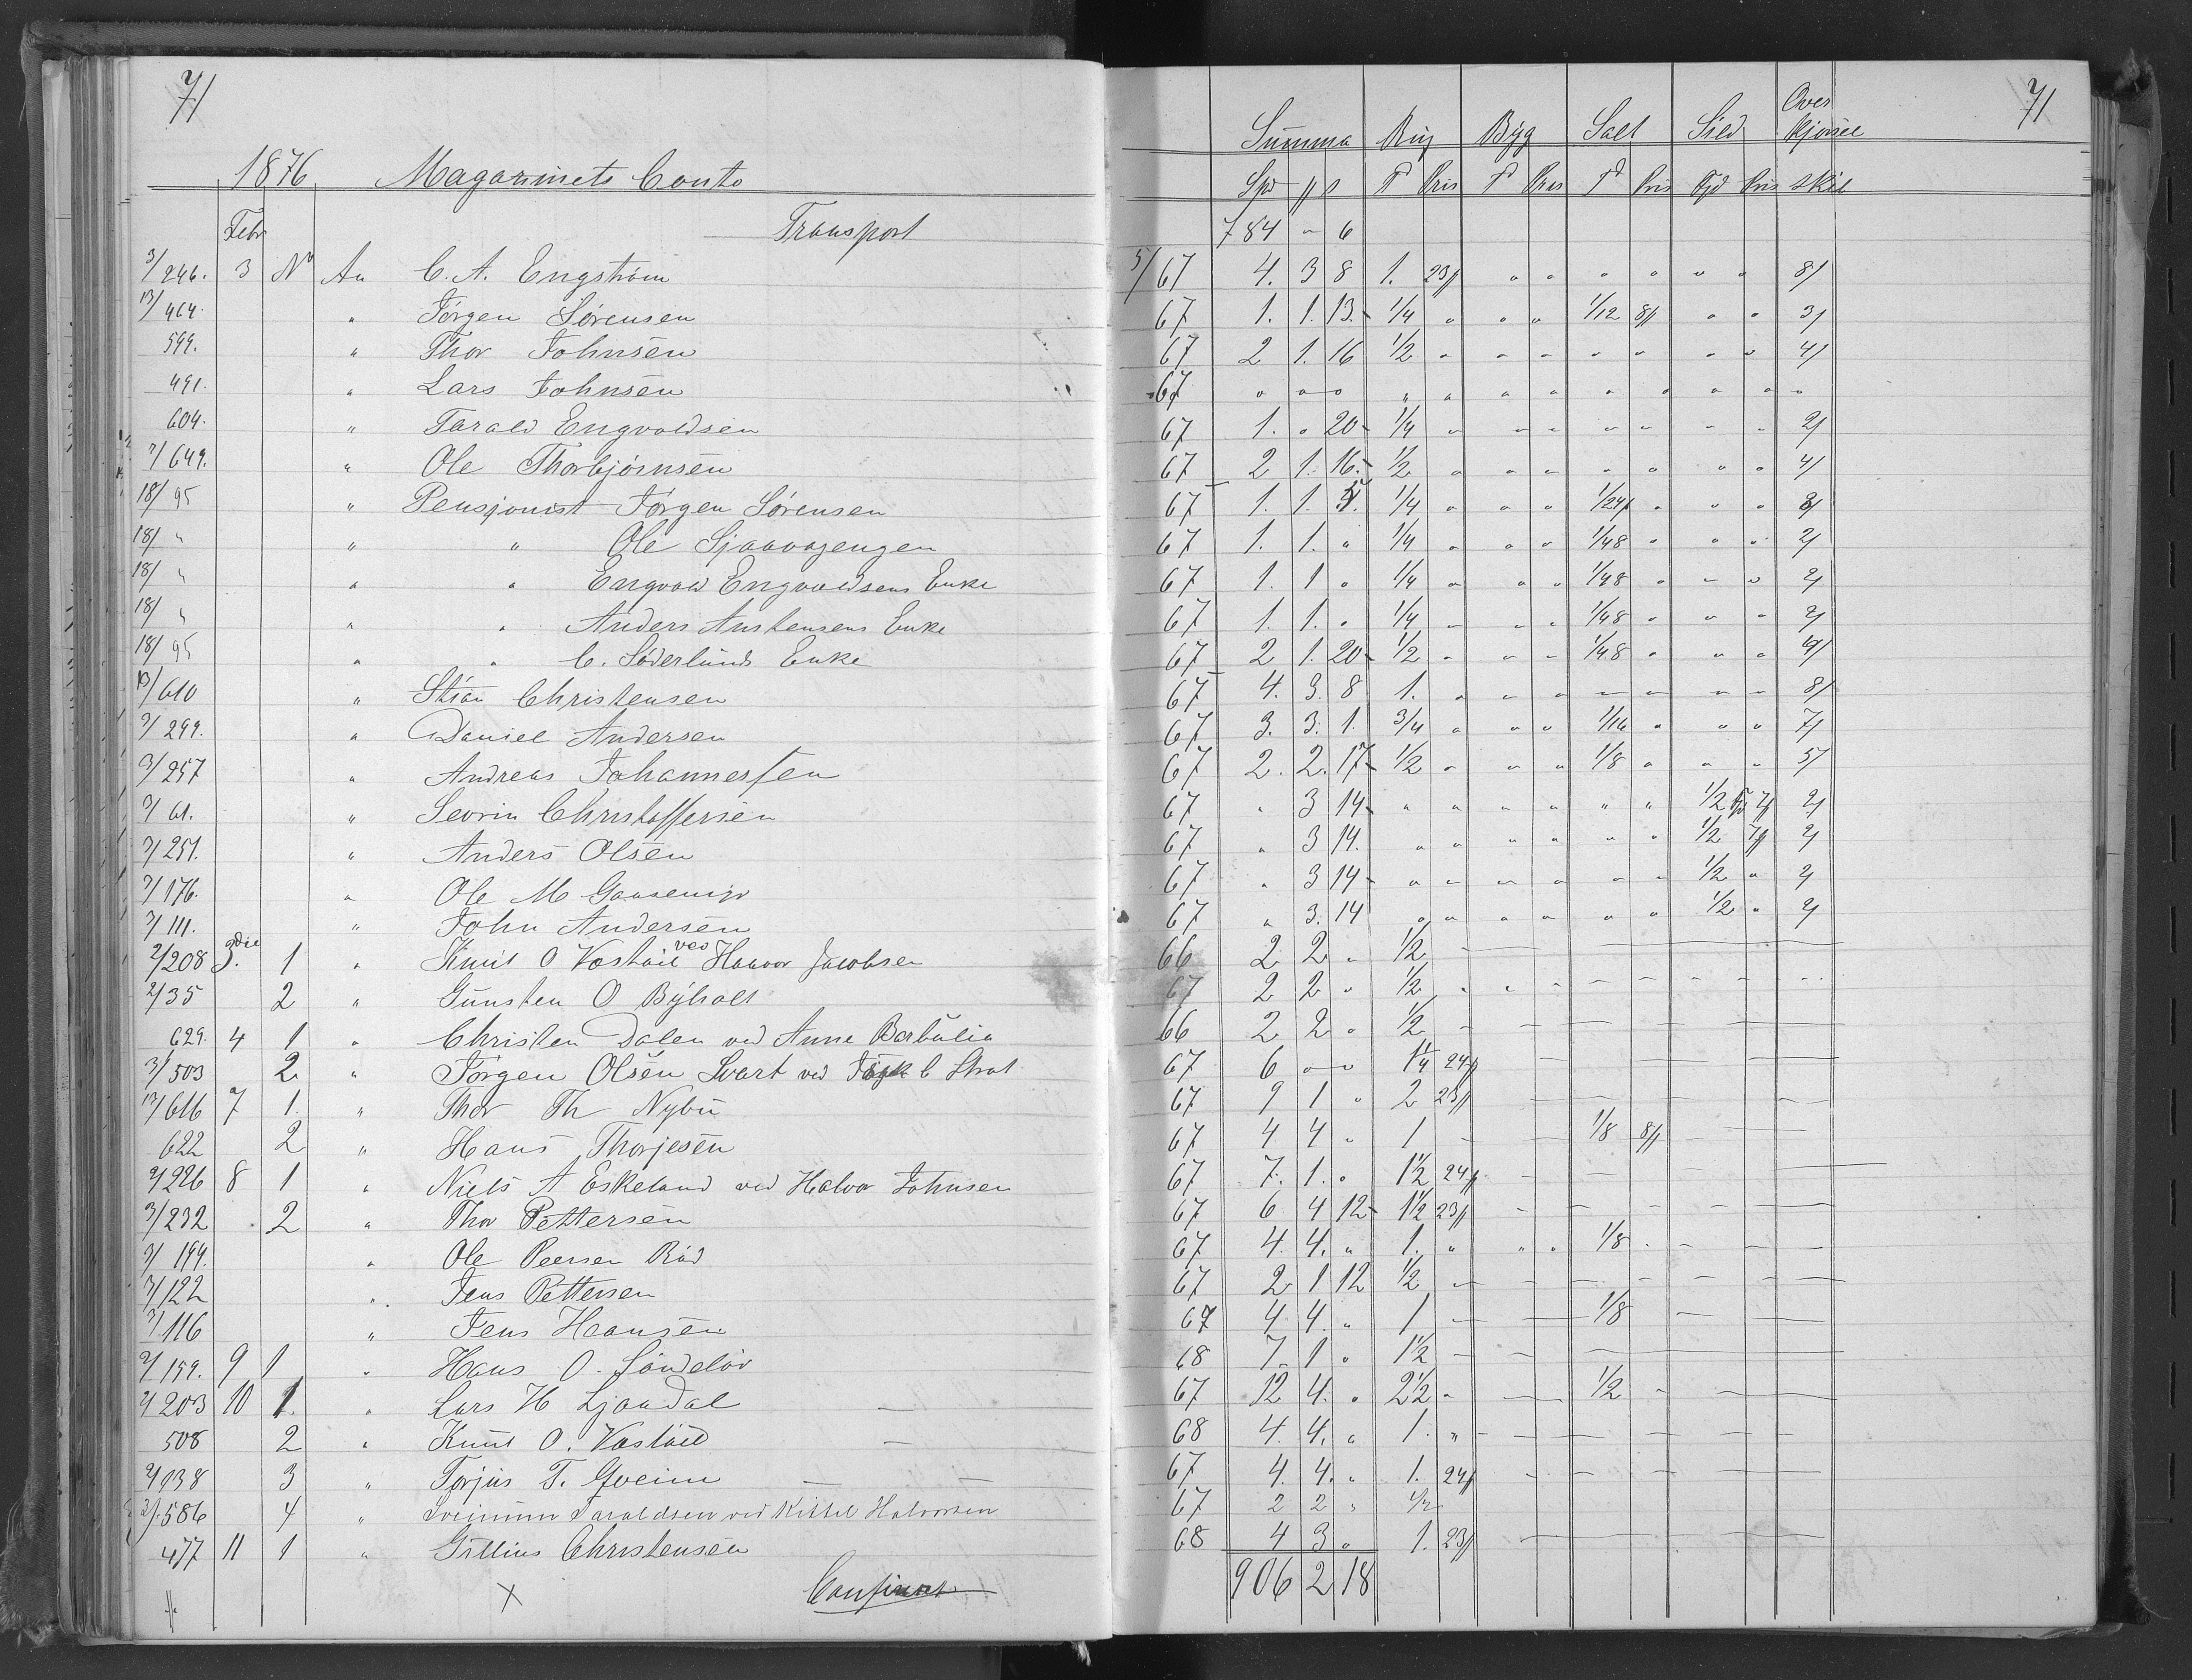 71
1876 Magazinets Conto
Summa Rug Byg Salt Sild Over kjørsel 71
Spd ſ s T Pris T Pris Td Pris Fjd Pris skil
Febr Transport 784 " 6
3/246. 3 No An C. A. Engstrøm 5/67 4. 3 8 1. 23ſ " " " " " " 8/
13/464. " Jørgen Sørensen 67 1. 1. 13. 1/4 " " " 1/12 8ſ " " 3/
599. " Thor Johnsen 67 2 1. 16 1/2 " " " " " " " 4/
491. " Lars Johnsen 67 " " " " " " " " " " " "
604. " Tarald Engvoldsen 67 1. " 20 1/4 " " " " " " " 2/
7/649. " Ole Thorbjørnsen 67 2 1. 16. 1/2 " " " " " " " 4/
18/95 " Pensjonist Jørgen Sørensen 67 1. 1. 5. 1/4 " " " 1/24 " " " 3/
18/ " " " Ole Sjaavagengen 67 1. 1. " 1/4 " " " 1/48 " " " 2/
18/ " " " Engvold Engvoldsens Enke 67 1. 1 " 1/4 " " " 1/48 " " " 2/
18/ " " " Anders Anstensens Enke 67 1. 1. " 1/4 " " " 1/48 " " " 2/
18/95 " " C. Søderlunds Enke 67 2 1. 20 1/2 " " " 1/48 " " " 4/
13/610 " Stian Christensen 67 4. 3. 8 1. " " " " " " " 8/
3/299. " Daniel Andersen 67 3. 3. 1. 3/4 " " " 1/16 " " " 7/
3/257 " Andreas Johannessen 67 2. 2. 17 1/2 " " " 1/8 " " " 5/
3/61. " Sevrin Christoffersen 67 " 3 14 " " " " " " 1/2 7ſ 2/
3/251. " Anders Olsen 67 " 3 14. " " " " " " 1/2 7ſ 2/
3/176. " Ole M 67 " 3 14 " " " " " " 1/2 " 2/
3/111. " John Andersen 67 " 3. 14 " " " " " " 1/2 " 2/
2/208 3die 1 " Knut O Vastøil ved Haavor Jacobsen 66 2 2 " 1/2
2/35 2 " Gunsten O Byholt 67 2 2 " 1/2 " " "
629. 4 1 " Christen Dalen ved Anne Barbulia 66 2 2 " 1/2
3/503 2 " Jørgen Olsen Svart ved C Strat 67 6 " " 1 1/4 24ſ
13/616 7 1. " Thor Th Nybu 67 9 1 " 2 23ſ
622 2 " Hans Thorjesen 67 4 4 " 1 1/8 8ſ
2/226 8 1 " Niels A Eskeland ved Halvor Johnsen 67 7. 1. " 1 1/2 24ſ
3/232 2 " Thor Pettersen 67 6 4 12 1 1/2 23ſ
3/199. " Ole Peersen Rød 67 4. 4. " 1. " " " 1/8
3/122 " Jens Pettersen 67 2 1 12 1/2
3/116 " Jens Hansen 67 4 4. " 1 1/8
2/159. 9 1 " Hans O. Søndeløv 68 7. 1 " 1 1/2
2/203 10 1. " Lars H Ljøsdal 67 12 4. " 2 1/2 " 1/2
508 2 " Knut O. Vastøil 68 4. 4. " 1. "
2/138 3 " Torjus T. Gveim 67 4. 4. " 1. 24ſ
2/586 4 " Sveinum Taraldsen ved Kittel Halvorsen 67 2 2 " 1/2
477 11 1 " Gillius Christensen 68 4 3 " 1. 23ſ
906 2 18